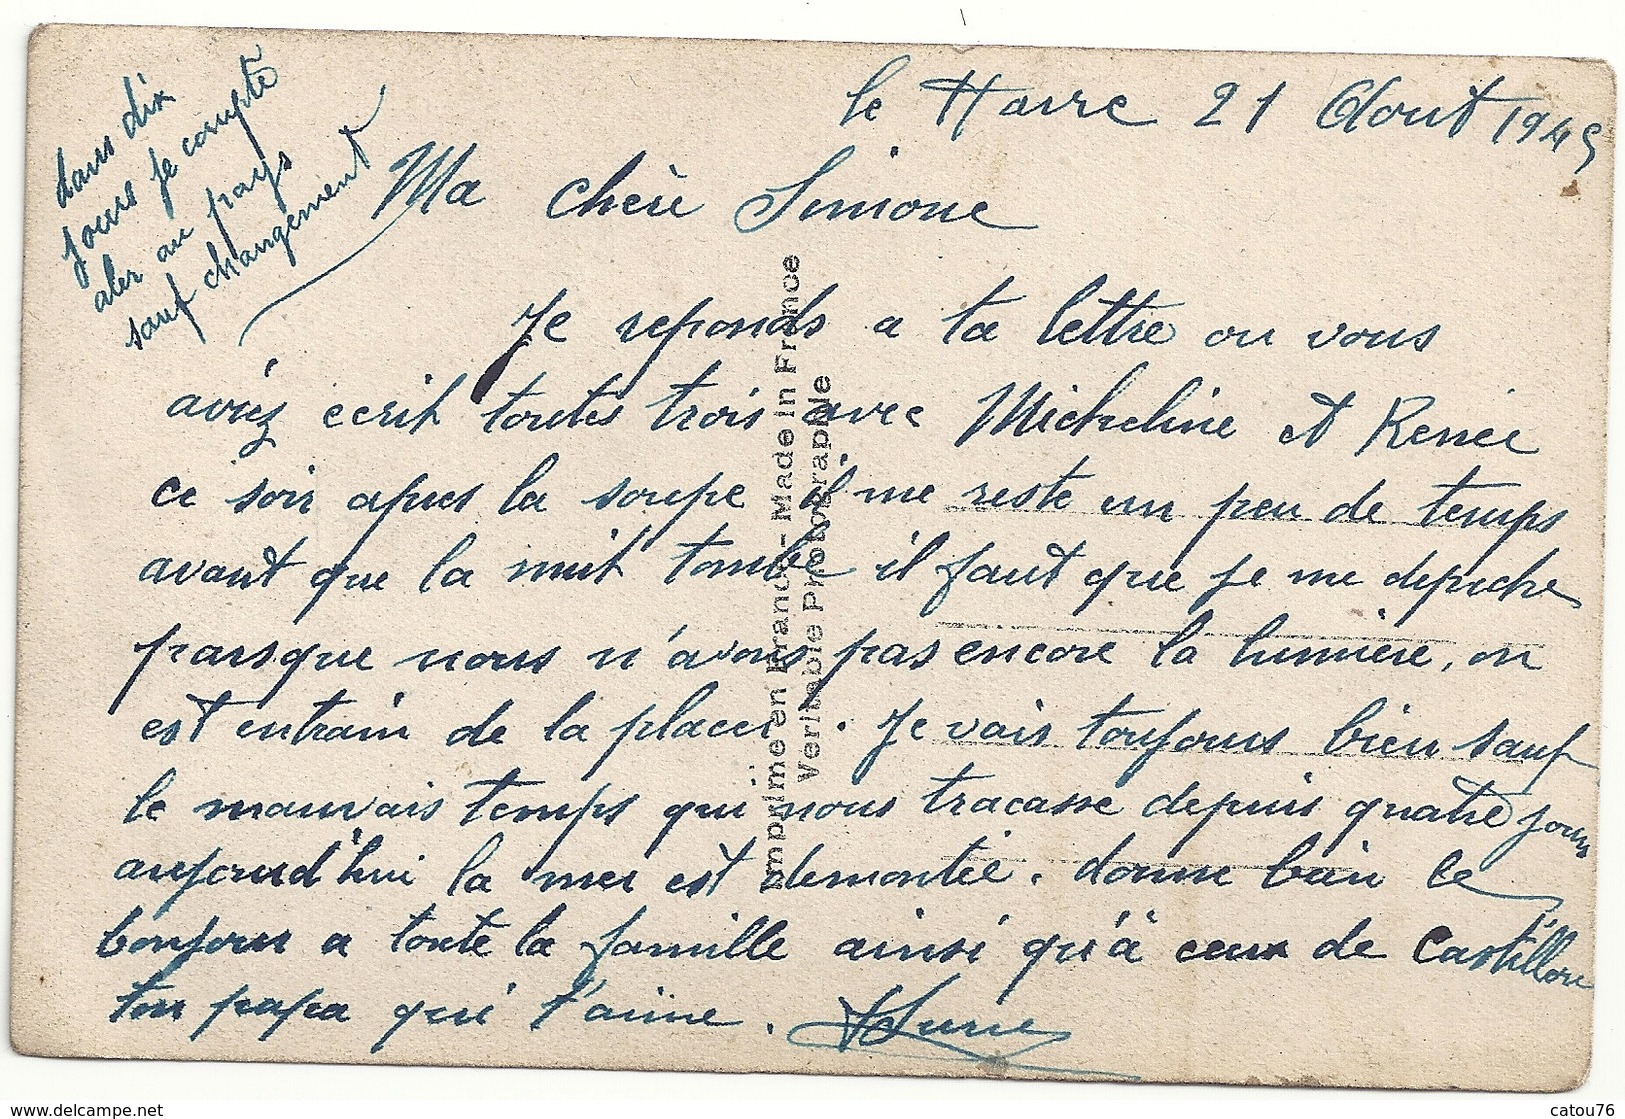 le Havre 21 Aout 1945
dans dix
jours je compte
aler au pays
sauf changement
Ma chère Simone
Je reponds a ta lettre ou vous
aviez ecrit toutes trois avec Micheline et Renée
ce soir apres la soupe il me reste un peu de temps
avant que la nuit tombe il faut que je me depeche
parsque nous n'avons pas encore la lumière, on
est entrain de la placer. Je vais toujours bien sauf
le mauvais temps qui nous tracasse depuis quatre jours
aujourd'hui la mer est demontée. donne bien le
bonjour a toute la famille ainsi qu'à ceux de Castillon
ton papa qui t'aime.
Imprimé en France - Made in France
Véritable Photographie
catou76